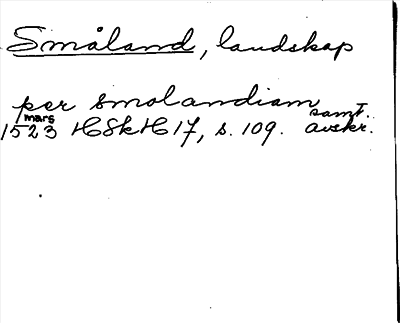 Småland, landskap
per smolandiam
1/mars 1523 HSkH 17, s. 109. samt. avskr.